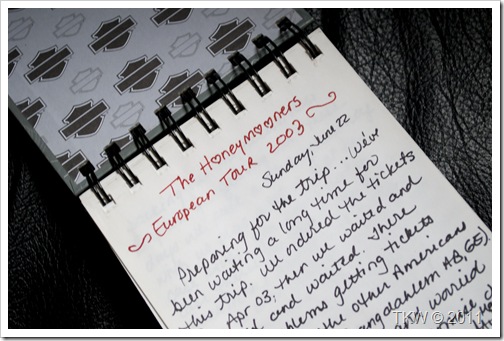 The Honeymooners
~ European Tour 2003 ~
Sunday, June 22
Preparing for the trip... We've
been waiting a long time for
this trip. We ordered the tickets
Apr 03, then we waited and
and waited. There
blems getting tickets
the other Americans
angdahlem AB, GE)
waried
TKW © 2011